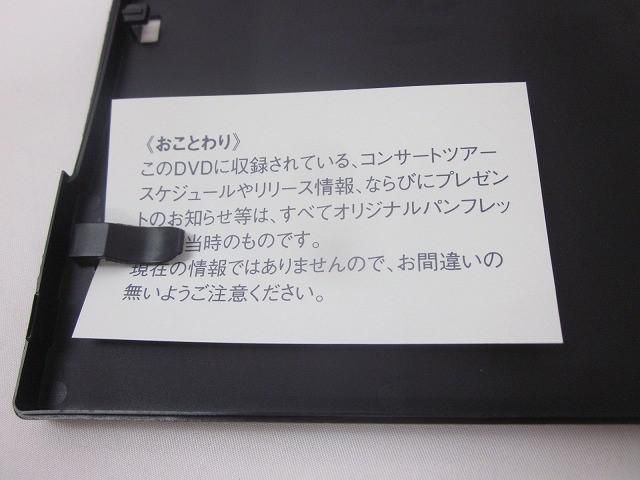 《おことわり》
このDVDに収録されている、コンサートツアー
スケジュールやリリース情報、ならびにプレゼン
トのお知らせ等は、すべてオリジナルパンフレッ
当時のものです。
現在の情報ではありませんので、お間違いの
無いようご注意ください。